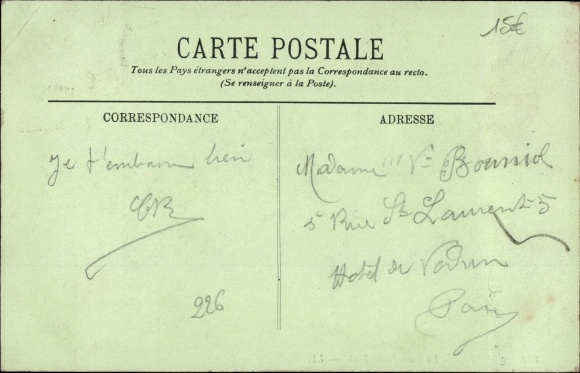 15€
CARTE POSTALE
Tous les Pays étrangers n'acceptent pas la Correspondance au recto.
(Se renseigner à la Poste).
CORRESPONDANCE
ADRESSE
Je t'embrasse bien
226
Madame Vve
5 Rue St Laurent 5
Hotel de Verdun
Paris